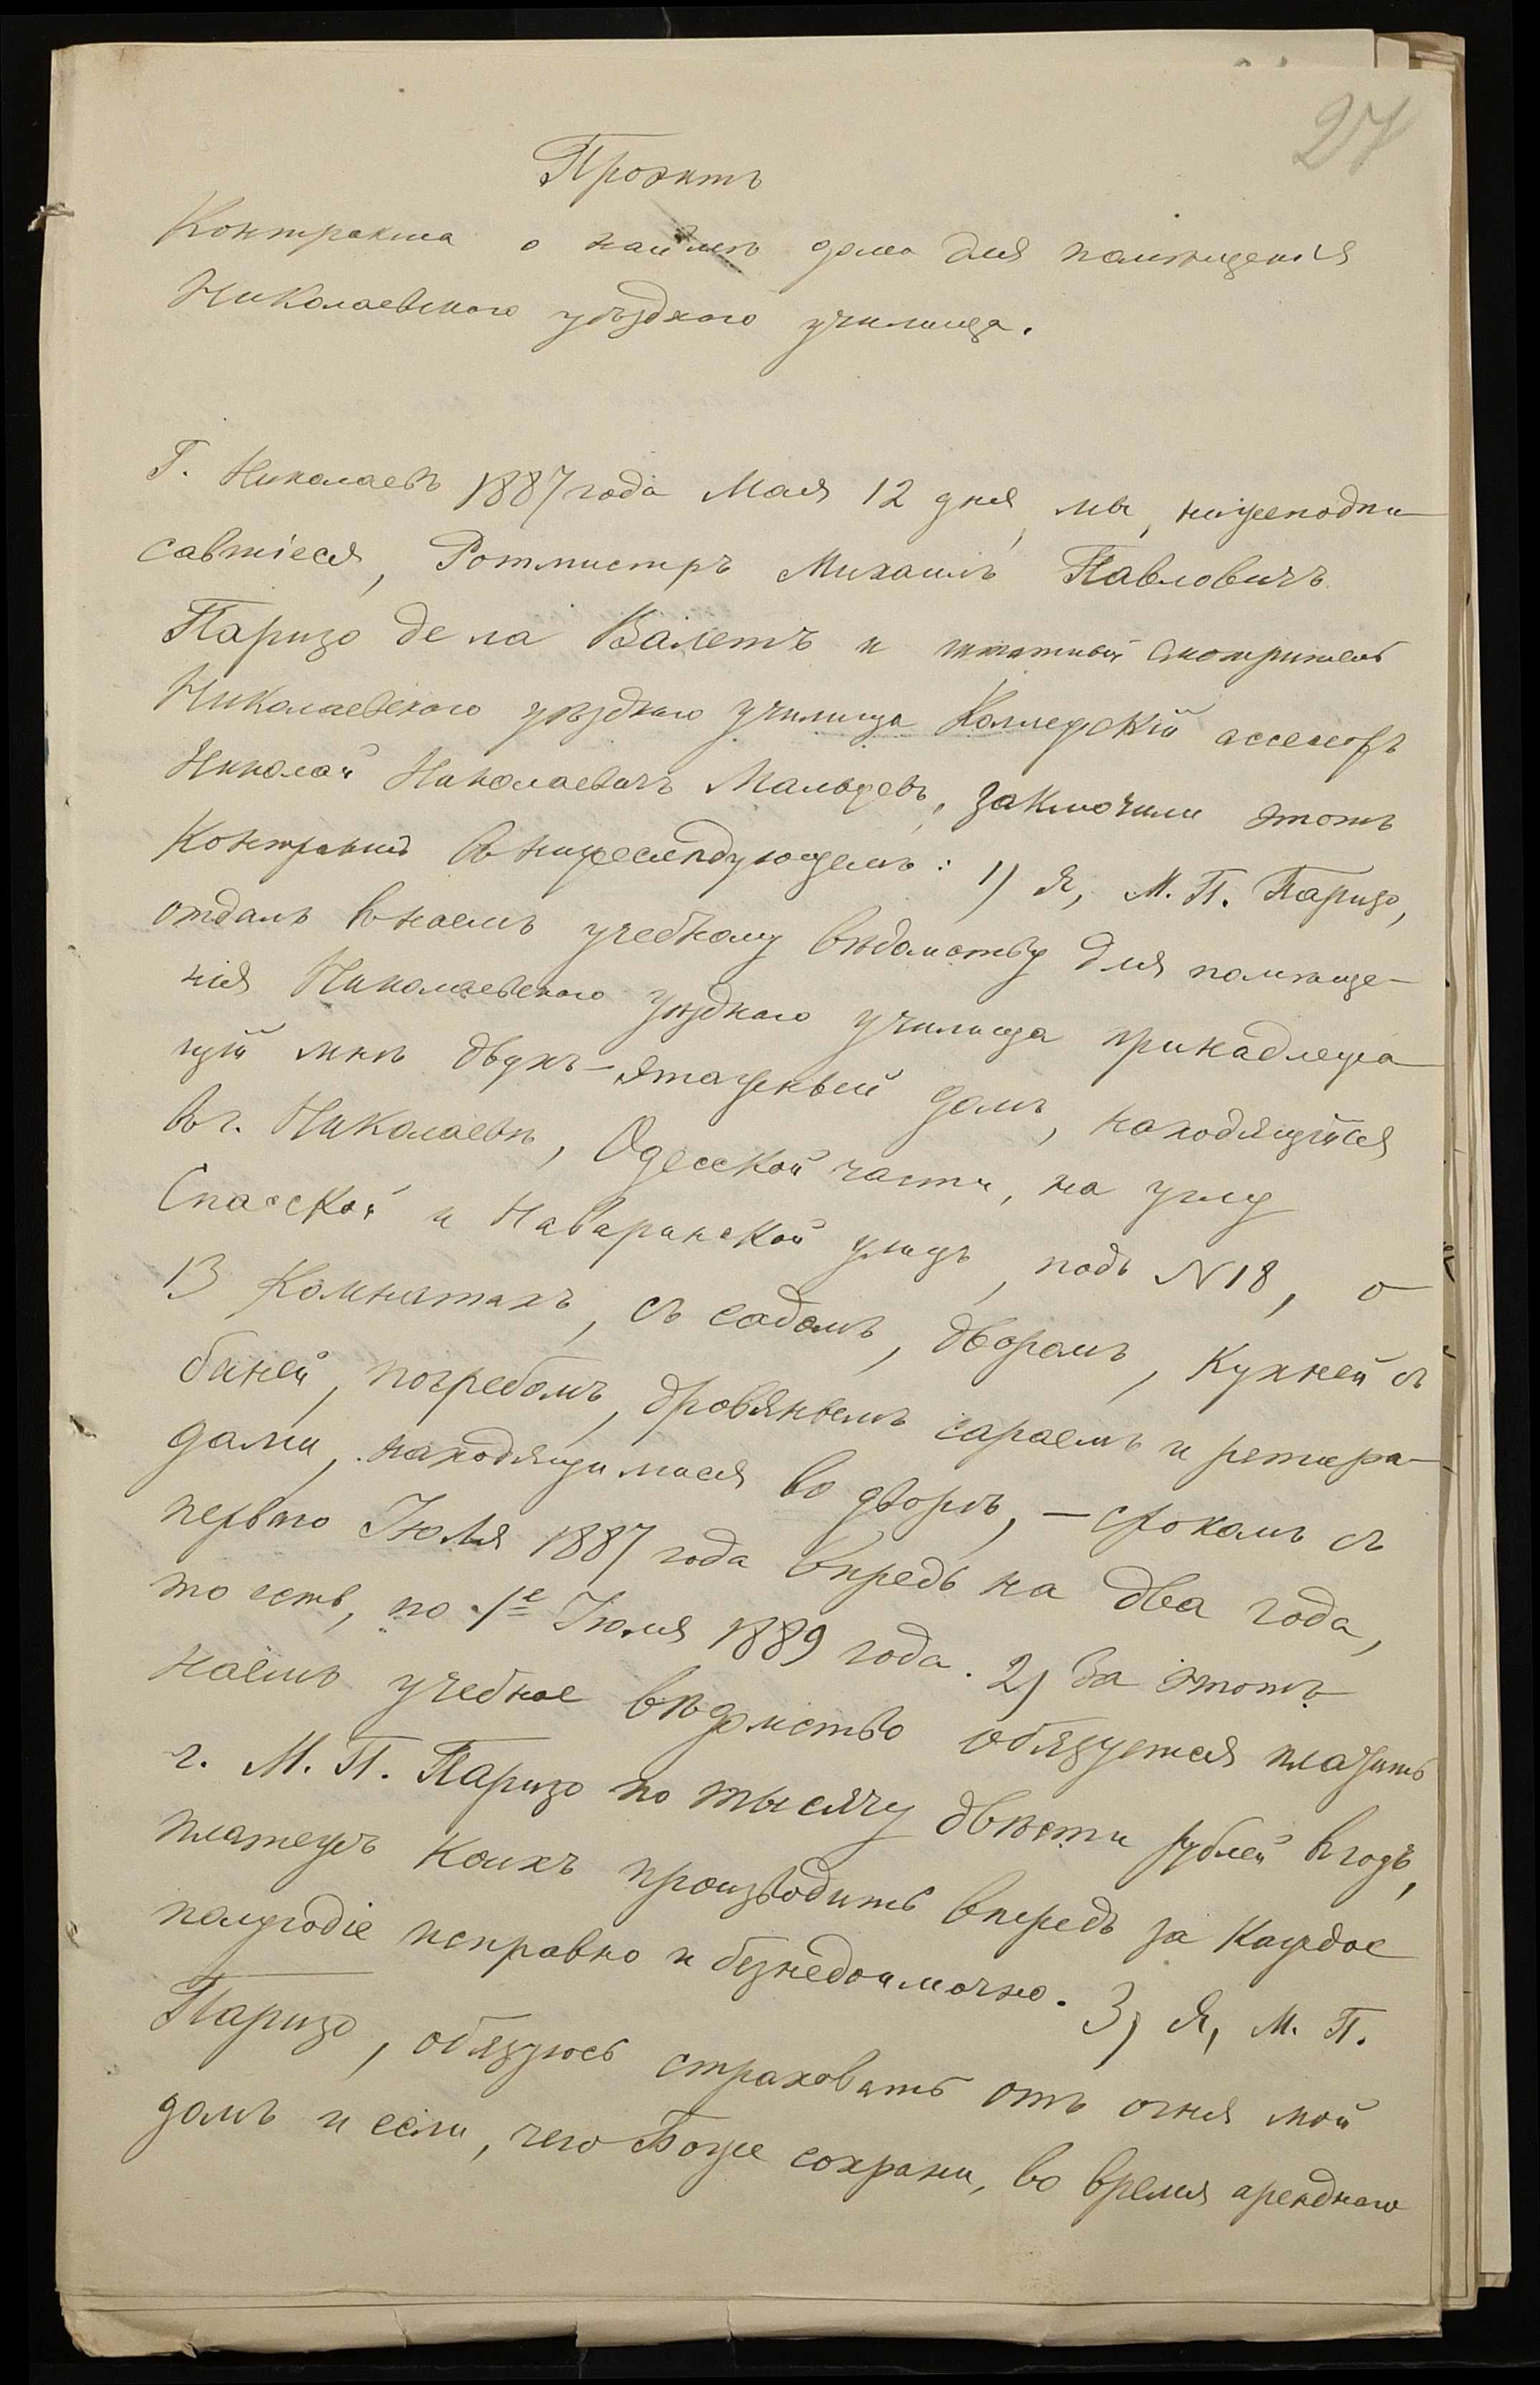 27
Проэктъ
Контракта о наймѣ дома для помѣщенія
Николаевскаго уѣзднаго училища.
Г. Николаевъ 1887 года Мая 12 дня, мы, нижеподпи-
савшіеся, Ротмистръ Михаилъ Павловичъ
Паризо де ла Валетъ и штатный смотритель
Николаевскаго уѣзднаго училища Коллежскій ассесоръ
Николай Николаевичъ Мальцевъ, заключили этотъ
Контрактъ въ нижеслѣдующемъ: 1) Я, М. П. Паризо,
отдалъ въ наемъ учебному вѣдомству для помѣще-
нія Николаевскаго уѣзднаго училища принадлежа-
щій мнѣ двухъ-этажный домъ, находящійся
въ г. Николаевѣ, Одесской части, на углу
Спасской и Наваринской улицъ, подъ N 18, о
13 Комнатахъ, съ садомъ, дворомъ, Кухней съ
баней, погребомъ, дровянымъ сараемъ и ретира-
дами, находящимися во дворѣ, – срокомъ съ
перваго Іюля 1887 года впредь на два года,
то есть, по 1е Іюля 1889 года. 2) За этотъ
наемъ учебное вѣдомство обязуется платить
г. М. П. Паризо по тысячу двѣсти рублей въ годъ,
платежъ коихъ производить впередъ за каждое
полугодіе исправно и безнедоимочно. 3) Я, М. П.
Паризо, обязуюсь страховать отъ огня мой
домъ и если, чего Боже сохрани, во время аренднаго